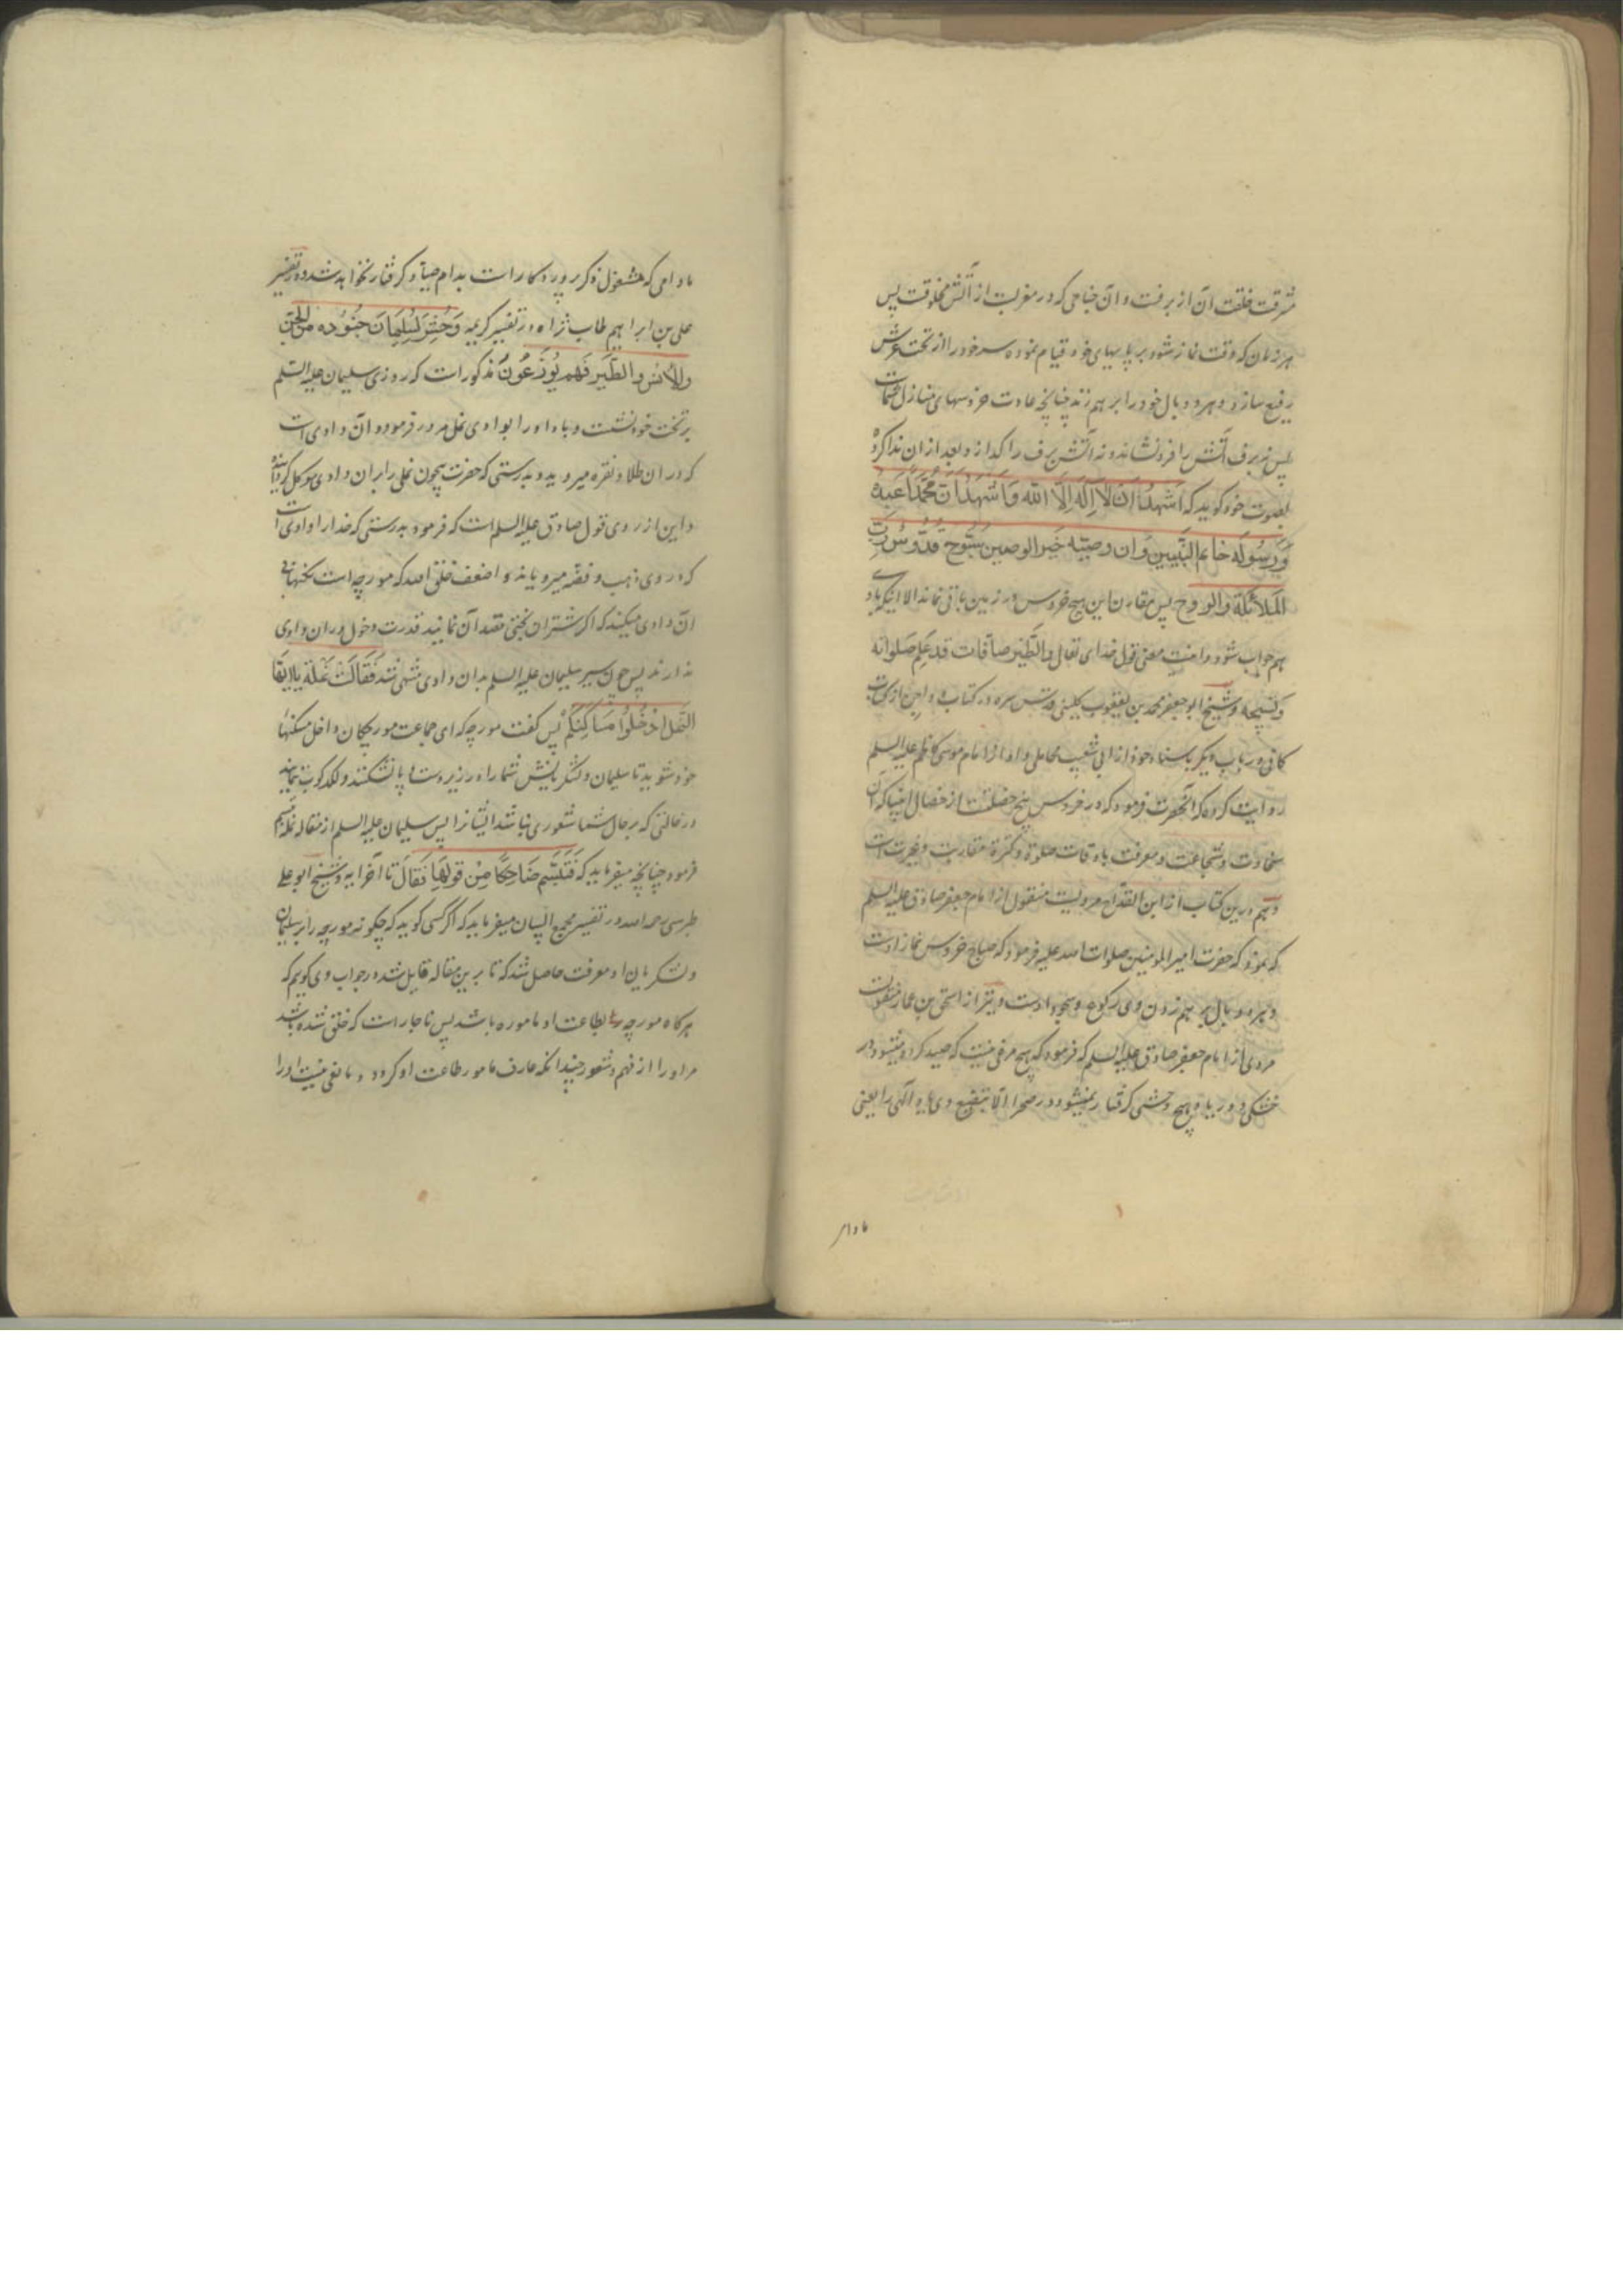 مشرقست خلقت آن از برفست و آن جناحی که در مغربست از آتش مخلوقست پس
هر زمان که وقت نماز شود بر پایهای خود قیام نموده سر خود را از تحت عرش
رفیع سازد و هر دو بال خود را بر هم زند چنانچه عادت خروسهای منازل شماست
پس نه برف آتش را فرونشاند و نه آتش برف را گدازد و بعد از آن ندا کرده
بصوت خود گوید که اَشْهَدُ اَنْ لا اِلهَ اِلَّا الله وَ اَشْهَدُ اَنَّ مُحَمَّداً عَبْدُهُ
وَ رَسُولُه خاتم النَّبیین وَ ان وصیّه خَیر الوصیین سُبّوح قدّوس رَبّ
المَلائکة والروح پس مقارن این هیچ خروس در زمین باقی نماند الا اینکه با او
هم جواب شود و اینست معنی قول خدای تعالی والطَّیْر صآفّات قد عَلِمَ صَلوتَه
وَ تَسْبیحَه و شیخ ابو جعفر محمد بن یعقوب کلینی قدس سره در کتاب دواجن از کتاب
کافی در باب دیک باسناد خود از ابی شعیب محاملی و او از امام موسی کاظم علیه السلم
روایت کرده که آنحضرت فرمود که در خروس پنج خصلت از خصال انبیا که آن
سخاوت و شجاعت و معرفت باوقات صلوة و کثرة مقاربت و غیرتست
و هم درین کتاب از ابن القدّاح مرویست منقول از امام جعفر صادق علیه السلم
که نموده که حضرت امیر المومنین صلوات الله علیه فرمود که صیاح خروس نماز اوست
و هر دو بال بر هم زدن وی رکوع و سجود اوست و نیز از اسحق بن عمار منقولست
مروی از امام جعفر صادق علیه السلم که فرمود که هیچ مرغی نیست که صید کرده میشود در
خشکی و دریا و هیچ وحشی گرفتار نمیشود در صحرا الّا بتضییع وی مر آلهی را یعنی
مادام
مادامی که مشغول ذکر پروردگار است بدام صیّاد گرفتار نخواهد شد و در تفسیر
علی بن ابراهیم طاب ثراه در تفسیر کریمه وَحُشِرَ لِسُلَیْمانَ جُنُودُه مِنَ الجنّ
وَالاْنس والطَّیْر فَهُم یُوزَعُونَ مذکور است که روزی سلیمان علیه السّلم
بر تخت خود نشست و باد او را بوادی نمل مرور فرمود و آن وادی است
که در آن طلا و نقره میروید و بدرستی که حضرت بیچون نملی را بر آن وادی موکل گردانیده
و این از روی قول صادق علیه السلم است که فرمود بدرستی که خدا را وادی است
که در وی ذهب و فضّه میرویاند و اضعف خلق الله که مورچه است نگهبانی
آن وادی میکند که اگر شتران بختی قصد آن نمایند قدرت دخول در آن وادی
ندارند پس چون سیر سلیمان علیه السلم بدان وادی منتهی شد فَقَالَتْ نَمْلَة یا اَیُّهَا
النَّمْل ادْخُلُوا مَسَاکِنَکُمْ پس گفت مورچه که ای جماعت مورچگان داخل مسکنهای
خود شوید تا سلیمان و لشکریانش شما را در زیر دست و پا نشکنند و لگدکوب ننمایند
در حالتی که بر حال شما شعوری نباشد ایشانرا پس سلیمان علیه السلم از مقاله نمله تبسم
فرمود چنانچه میفرماید که فَتَبَسَّمَ ضَاحِکًا مِنْ قَوْلِهَا فَقَالَ تا آخر آیه و شیخ ابو علی
طبرسی رحمه الله در تفسیر مجمع البیان میفرماید که اگر کسی گوید که چگونه مورچه را بر سلیمان
و لشکریان او معرفت حاصل شد که تا برین مقاله قایل شد در جواب وی گویم که
هر گاه مورچه بطاعت او مأمور باشد پس ناچار است که خلق شده باشد
مر او را از فهم و شعور چندانکه عارف مأمور طاعت او گردد و مانعی نیست او را